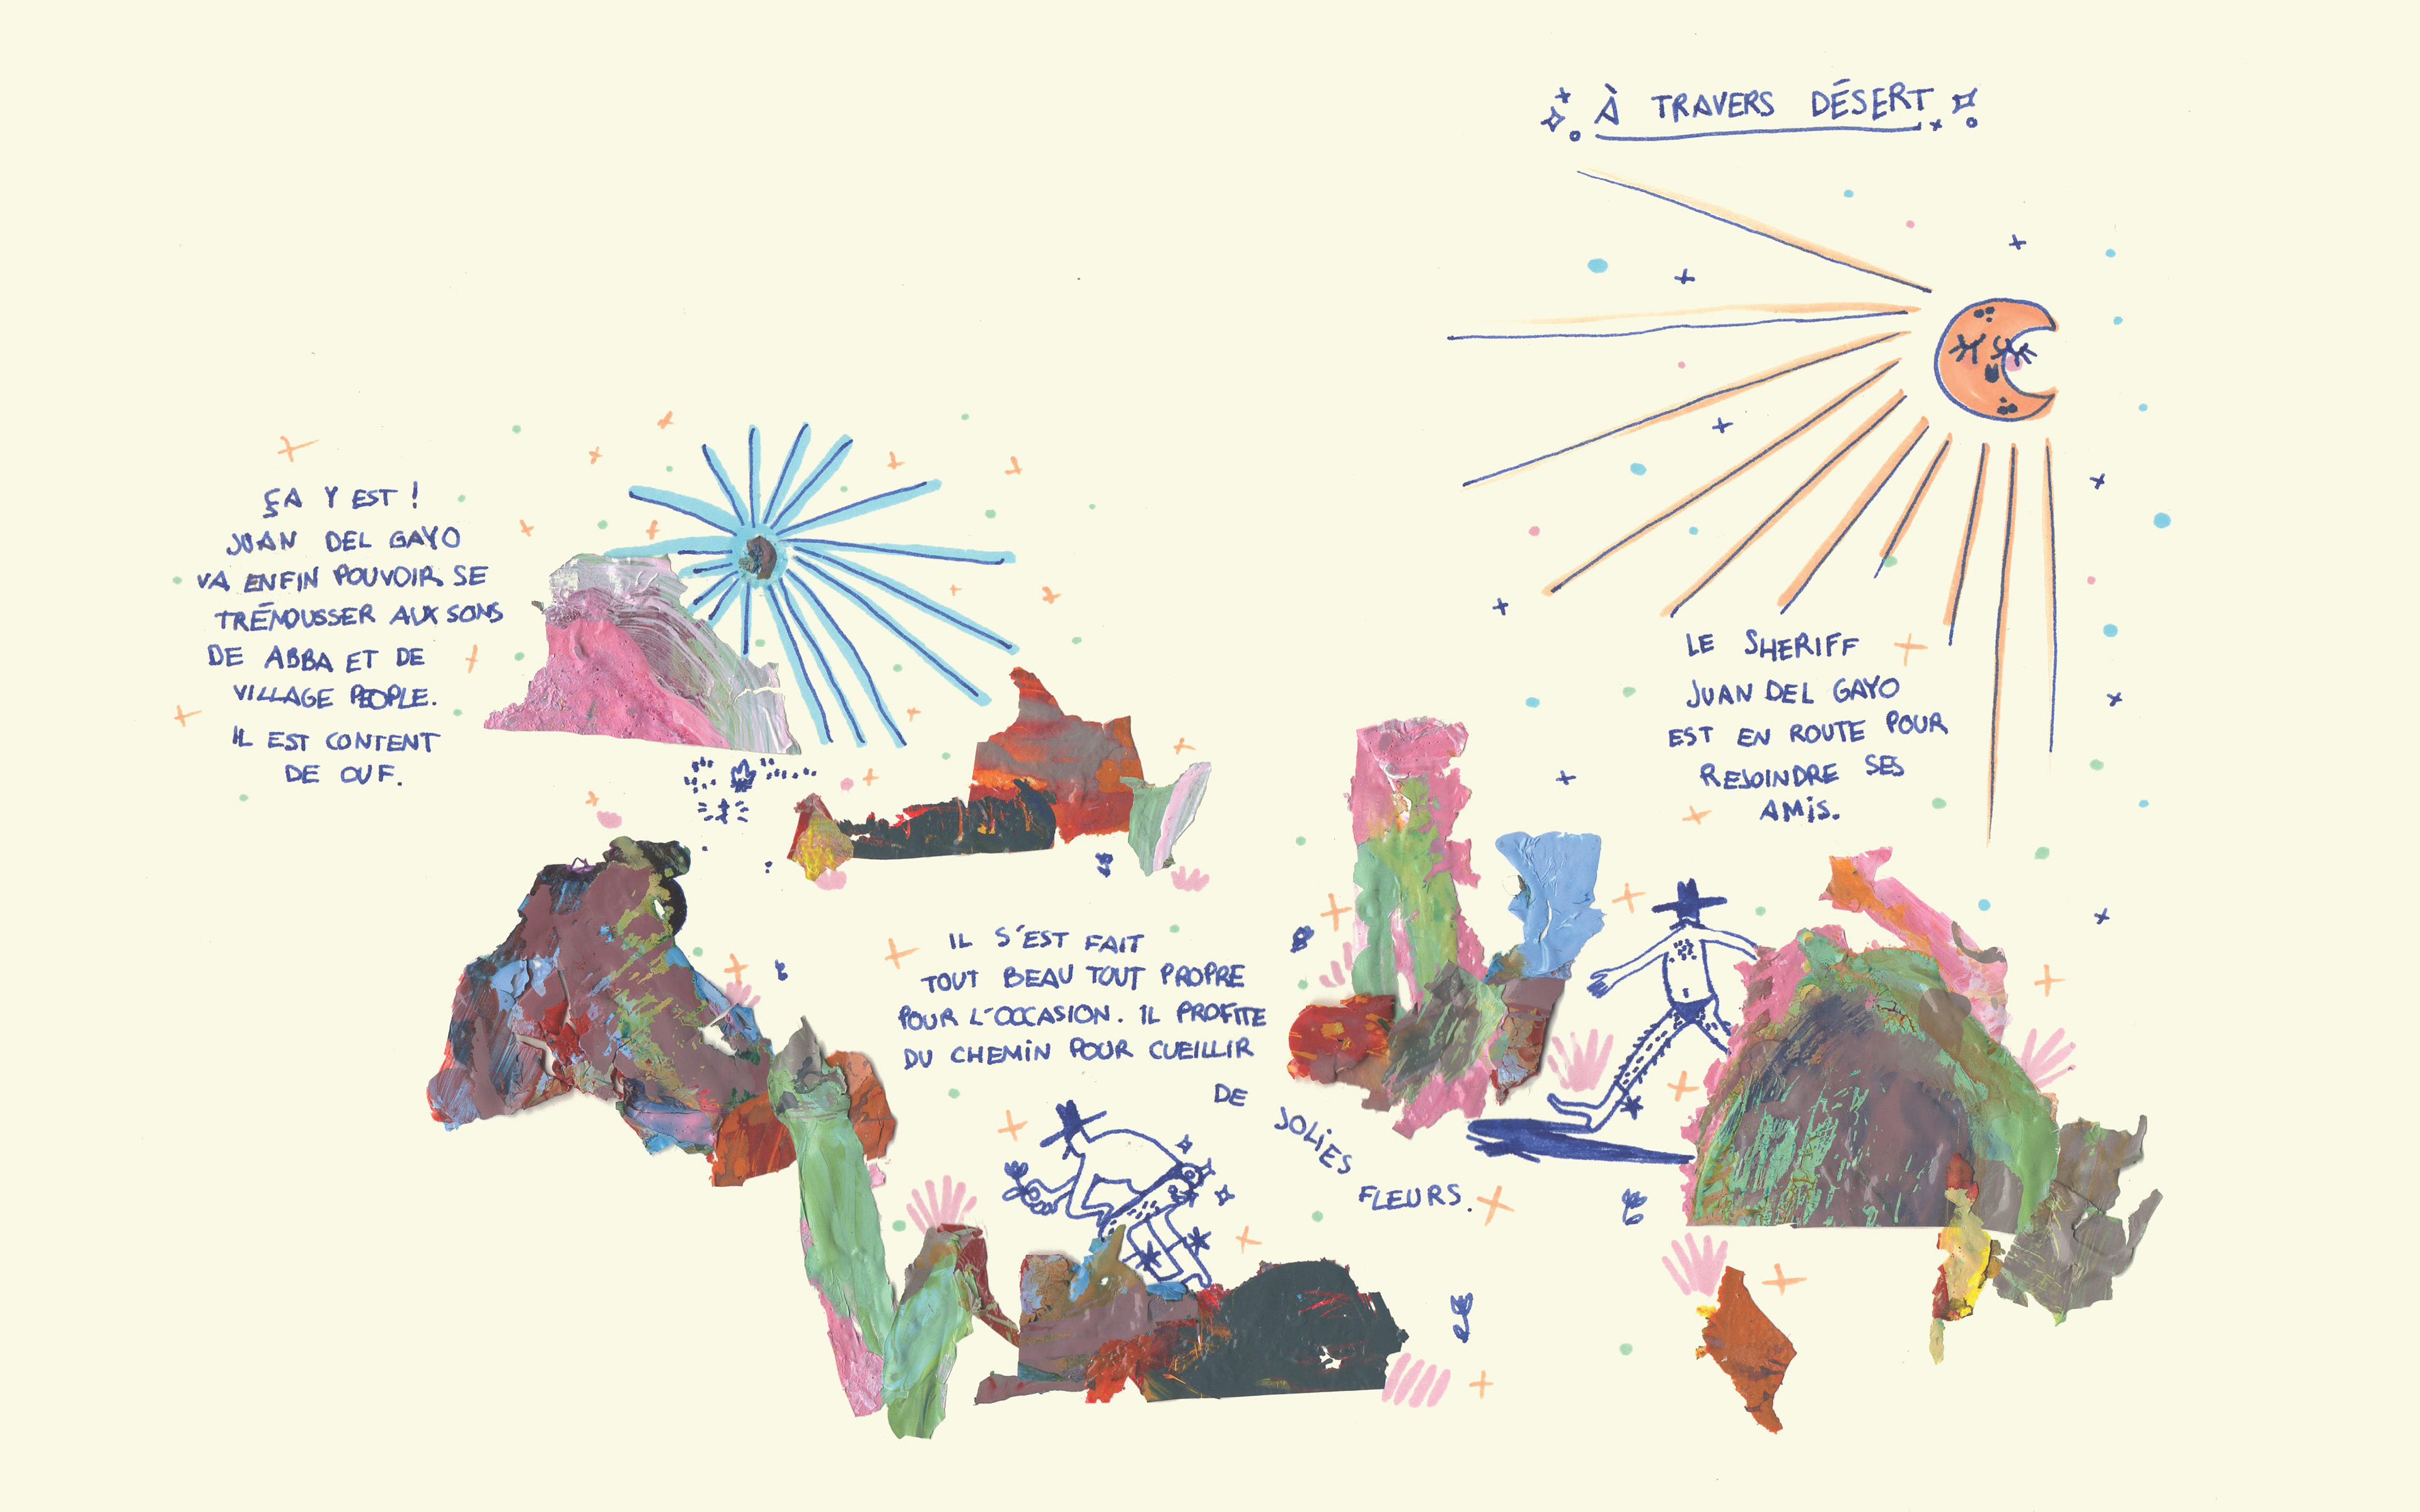 À TRAVERS DÉSERT
LE SHERIFF
JUAN DEL GAYO
EST EN ROUTE POUR
REJOINDRE SES
AMIS.
IL S'EST FAIT
TOUT BEAU TOUT PROPRE
POUR L'OCCASION. IL PROFITE
DU CHEMIN POUR CUEILLIR
DE
JOLIES
FLEURS.
ÇA Y EST !
JUAN DEL GAYO
VA ENFIN POUVOIR SE
TRÉMOUSSER AUX SONS
DE ABBA ET DE
VILLAGE PEOPLE.
IL EST CONTENT
DE OUF.